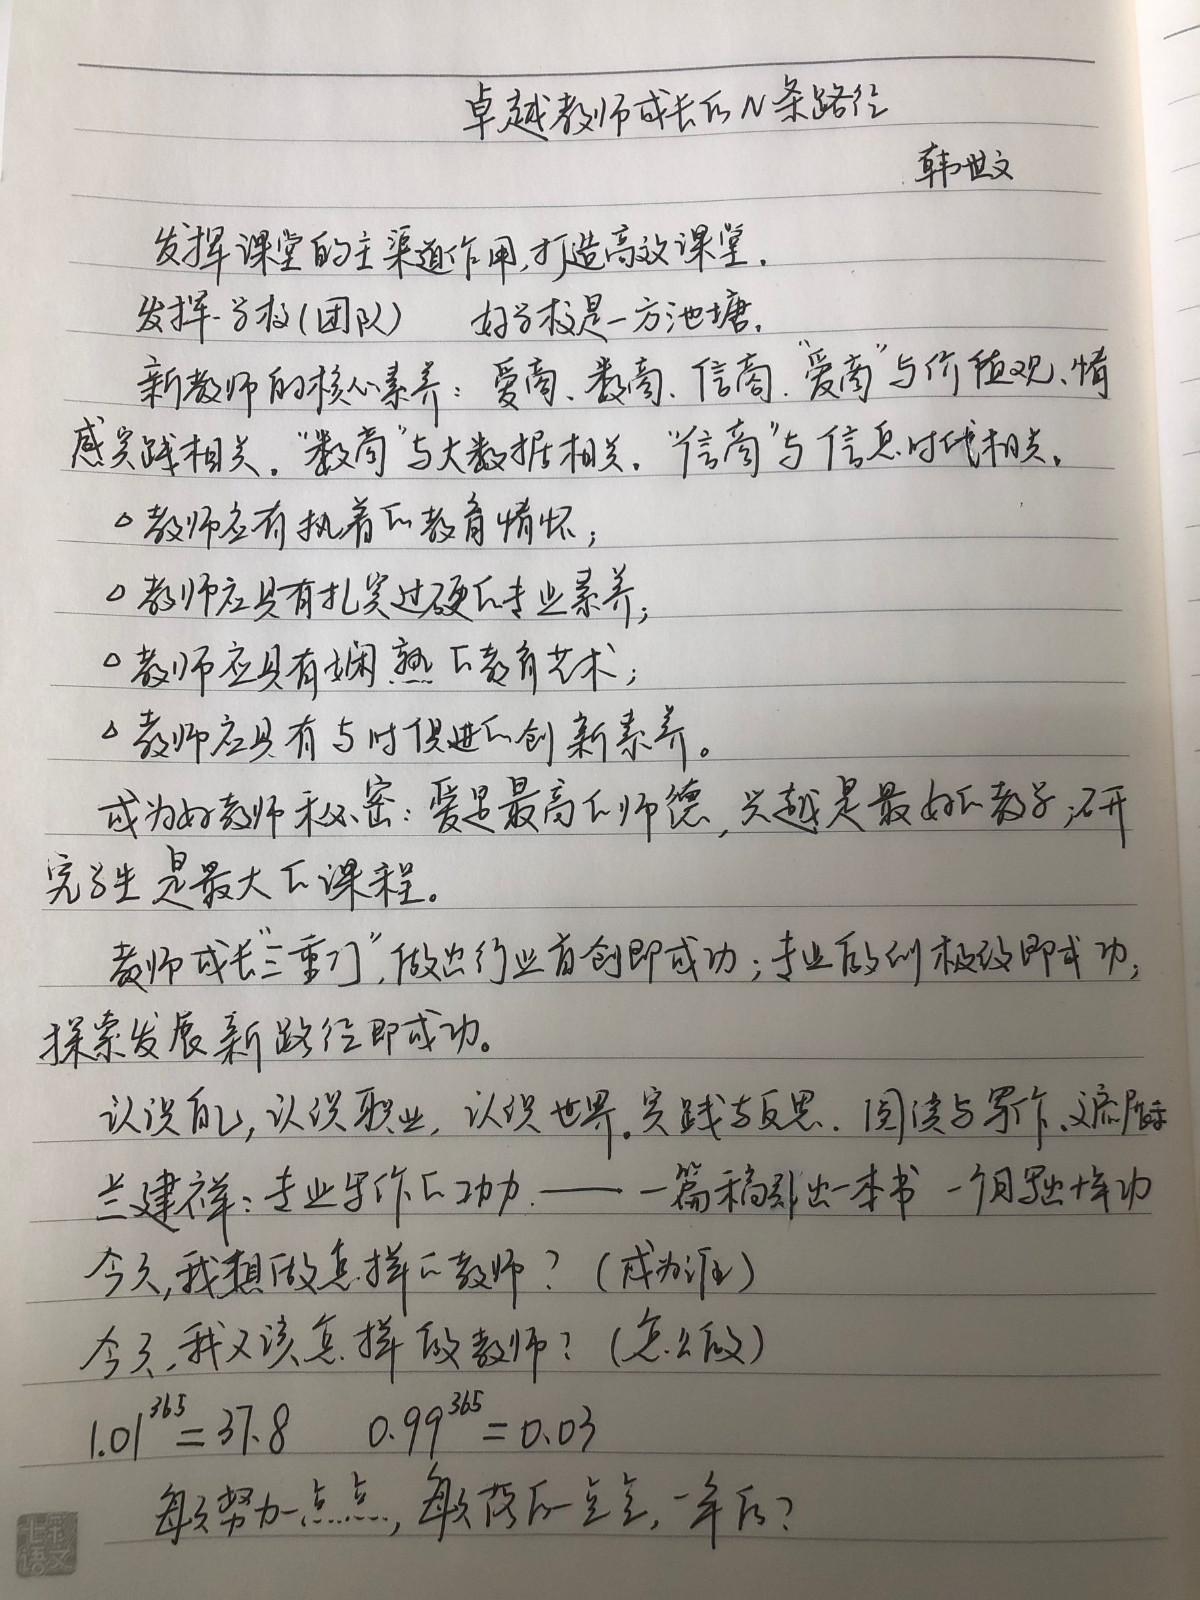 卓越教师成长的N条路径
韩世文
发挥课堂的主渠道作用,打造高效课堂.
发挥学校(团队) 好学校是一方池塘.
新教师的核心素养: 爱商、数商、信商."爱商"与价值观、情
感实践相关."数商"与大数据相关."信商"与信息时代相关.
△教师应有执着的教育情怀;
△教师应具有扎实过硬的专业素养;
△教师应具有娴熟的教育艺术;
△教师应具有与时俱进的创新素养。
成为好教师秘密: 爱是最高的师德,兴趣是最好的教学;研
究学生是最大的课程。
教师成长"三重门",做出行业首创即成功;专业做到极致即成功;
探索发展新路径即成功。
认识自己,认识职业,认识世界.实践与反思.阅读与写作、交流展示
兰建祥:专业写作的功力——一篇稿引出一本书 一个月写出十年功
今天,我想做怎样的教师?(成为谁)
今天,我又该怎样做教师?(怎么做)
1.01³⁶⁵=37.8 0.99³⁶⁵=0.03
每天努力一点点,每天落后一点点,一年后?
七彩
语文